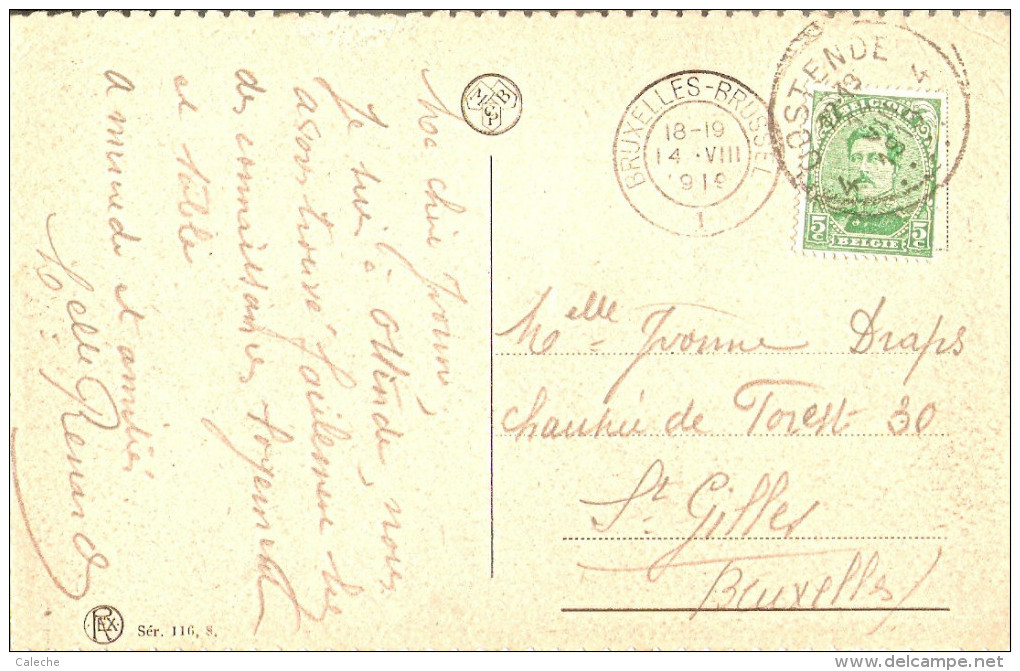 Ma chère Yvonne
Je suis à Ostende, nous
avons trouvé facilement
des connaissances logement
et table
Amitiés
Renard
MGPB
BRUXELLES-BRUSSEL
18-19
14 VIII
1919
1
OOSTENDE
BELGIË
5c 5c
BELGIE
Melle Yvonne Draps
Chaussée de Forest 30
St Gilles
Bruxelles
REX
Sér. 116, 8.
Caleche
delcampe.net